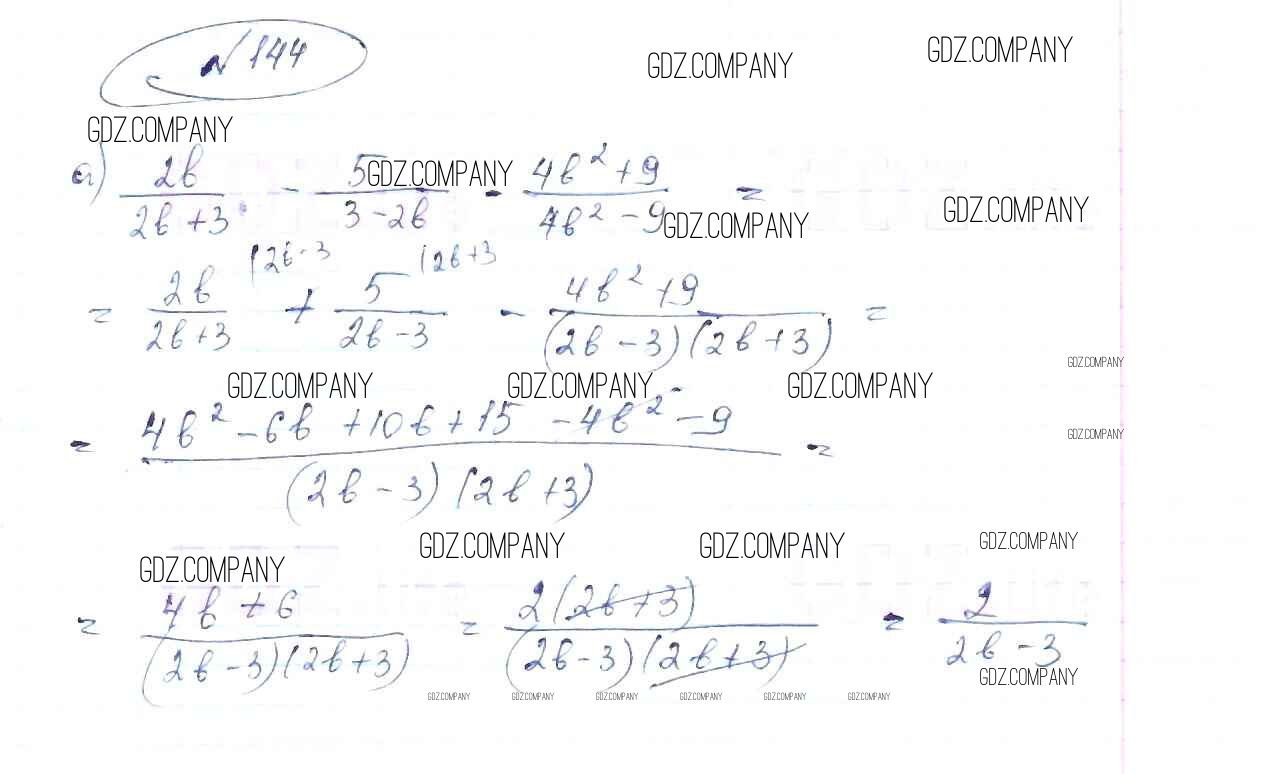 № 144
GDZ.COMPANY GDZ.COMPANY
GDZ.COMPANY
а) 2b/(2b+3) - 5/(3-2b) - (4b²+9)/(4b²-9) =
GDZ.COMPANY GDZ.COMPANY GDZ.COMPANY
= 2b/(2b+3) (2b-3 + 5/(2b-3) (2b+3 - (4b²+9)/((2b-3)(2b+3)) =
GDZ.COMPANY
GDZ.COMPANY GDZ.COMPANY GDZ.COMPANY
= (4b²-6b+10b+15-4b²-9)/((2b-3)(2b+3)) =
GDZ.COMPANY
GDZ.COMPANY GDZ.COMPANY GDZ.COMPANY GDZ.COMPANY
= (4b+6)/((2b-3)(2b+3)) = 2(2b+3)/((2b-3)(2b+3)) = 2/(2b-3)
GDZ.COMPANY
GDZ.COMPANY GDZ.COMPANY GDZ.COMPANY GDZ.COMPANY GDZ.COMPANY GDZ.COMPANY